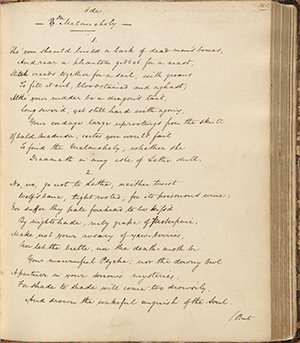 Ode,
on Melancholy
1.
Tho' you should build a bark of dead men's bones,
And rear a phantom gibbet for a mast,
Stitch creeds together for a sail, with groans
To fill it out, bloodstained and aghast;
Altho' your rudder be a dragon's tail,
Long sever'd, yet still hard with agony
Your cordage large uprootings from the skull
Of bald Medusa; certes you would fail
To find the Melancholy, whether she
Dreameth in any isle of Lethe dull.
2
No, no, go not to Lethe, neither twist
Wolf's bane, tight rooted, for its poisonous wine;
Nor suffer thy pale forehead to be kiss'd
By nightshade, ruby grape of Proserpine;
Make not your rosary of yew-berries
Nor let the beetle, nor the death-moth be
Your mournful Psyche, nor the downy Owl
A partner in your sorrow's mysteries;
For shade to shade will come too drowsily,
And drown the wakeful anguish of the Soul.
(But